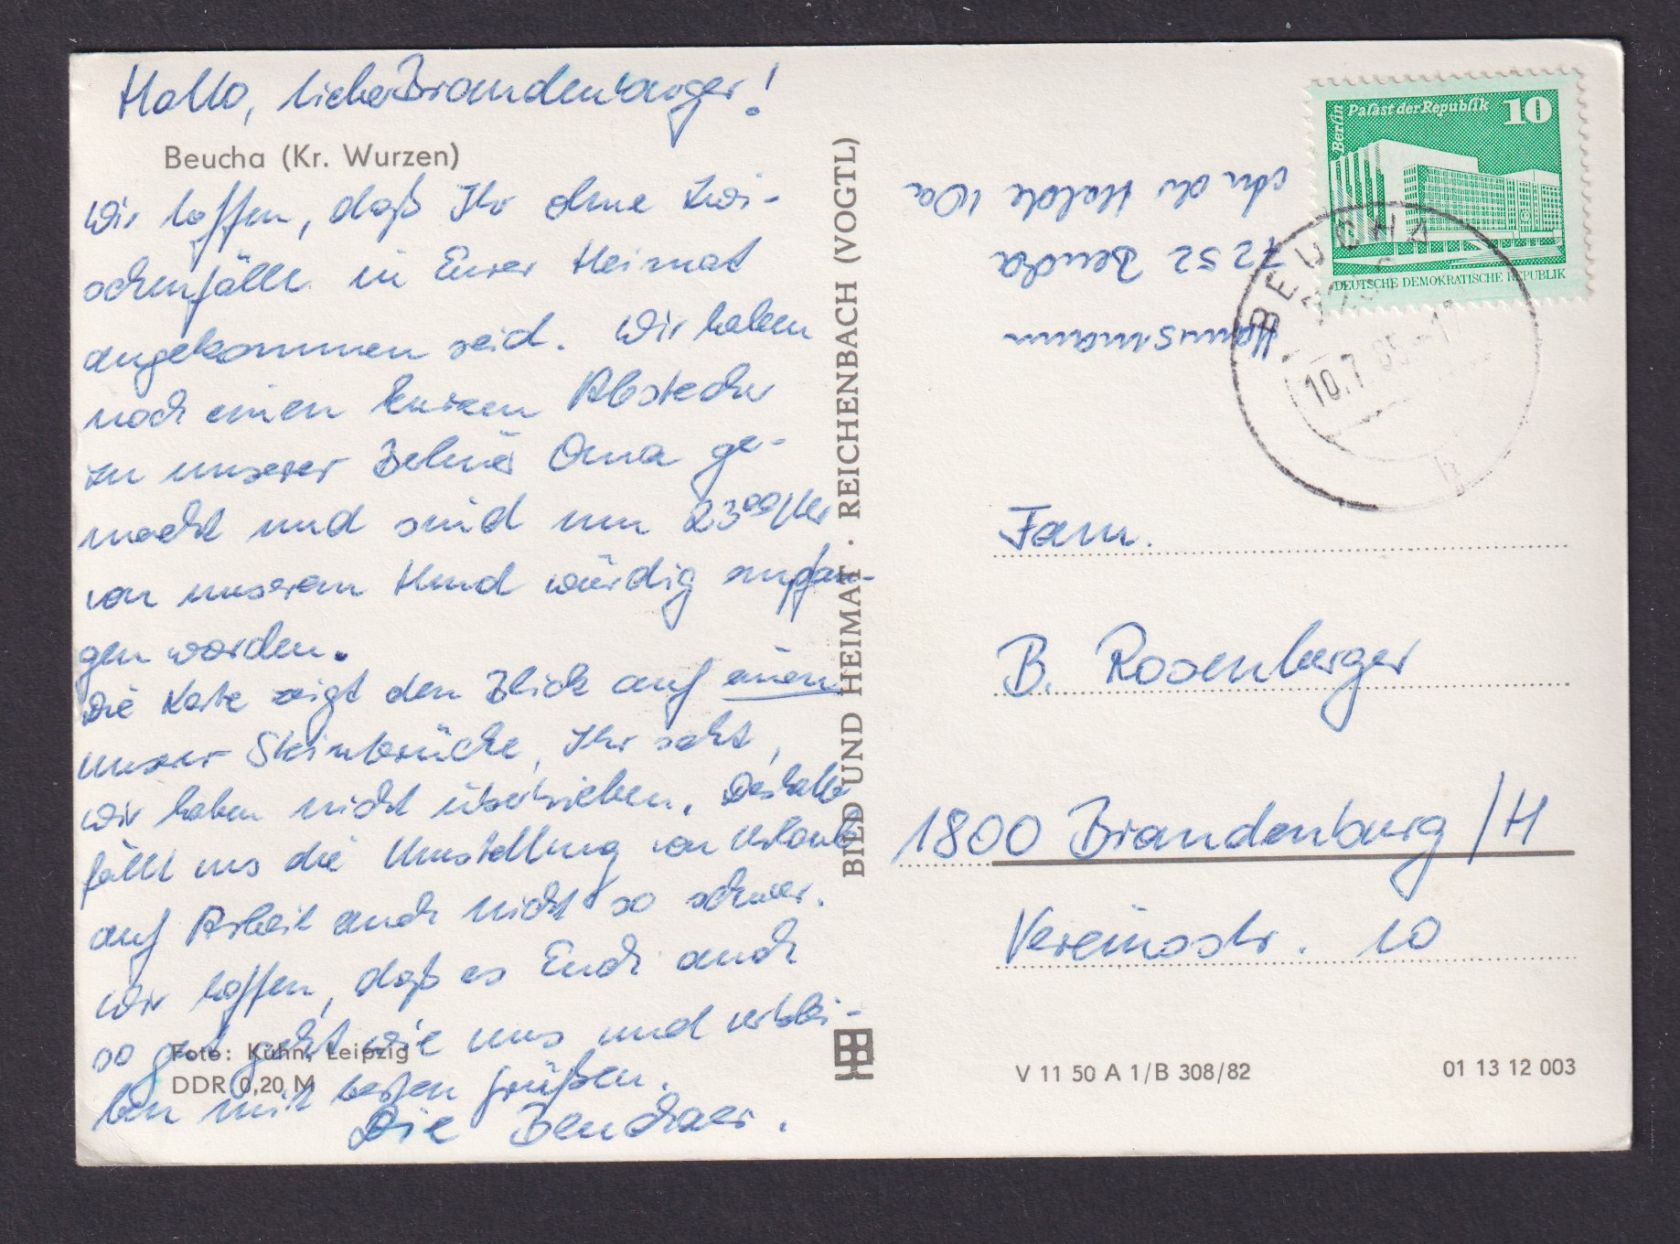 Hallo, liebe Brandenburger!
Beucha (Kr. Wurzen)
Wir hoffen, daß Ihr ohne Zwi-
schenfälle in Eurer Heimat
angekommen seid. Wir haben
noch einen kurzen Abstecher
zu unserer Oma ge-
macht und sind um 23⁰⁰ Uhr
von unserem Hund würdig empfan-
gen worden.
Die Karte zeigt den Blick auf einen
unserer Steinbrüche, Ihr seht,
wir haben nicht übertrieben. Deshalb
fällt uns die Umstellung von Urlaub
auf Arbeit auch nicht so schwer.
Wir hoffen, daß es Euch auch
so gut geht wie uns und verblei-
ben mit besten Grüßen.
Die Beuchaer.
Foto: Kühn, Leipzig
DDR 0,20 M
BILD UND HEIMAT · REICHENBACH (VOGTL)
Berlin
Palast der Republik 10
DEUTSCHE DEMOKRATISCHE REPUBLIK
BEUCHA
10.7.85
Hanusmann
7252 Beucha
An der Halde 10a
Fam.
B. Rosenberger
1800 Brandenburg/H
Vereinsstr. 10
V 11 50 A 1/B 308/82
01 13 12 003